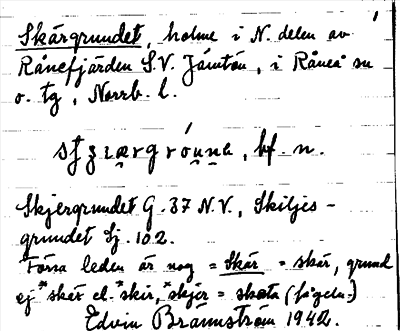 1
Skärgrundet, holme i N. delen av
Rånefjärden S.V. Jämtön, i Råneå sn
o. tg, Norrb. l.
bf. n.
Skjergrundet G. 37 N.V., Skiljes-
grundet Sj. 102.
Förra leden är nog = Skär = skär, grund
ej *skär el. *skir, *skjär = skata (fågeln)
Edvin Brännström 1942.